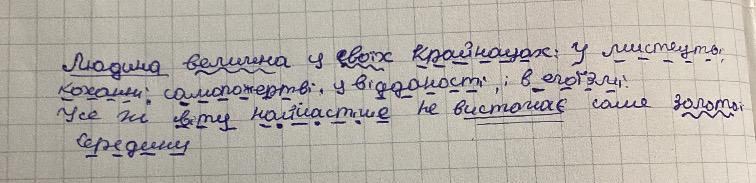 Людина велична у своїх крайнощах: у мистецтві,
коханні, самопожертві, у відданості, і в егоїзмі.
Усе ж світу найчастіше не вистачає саме золотої
середини